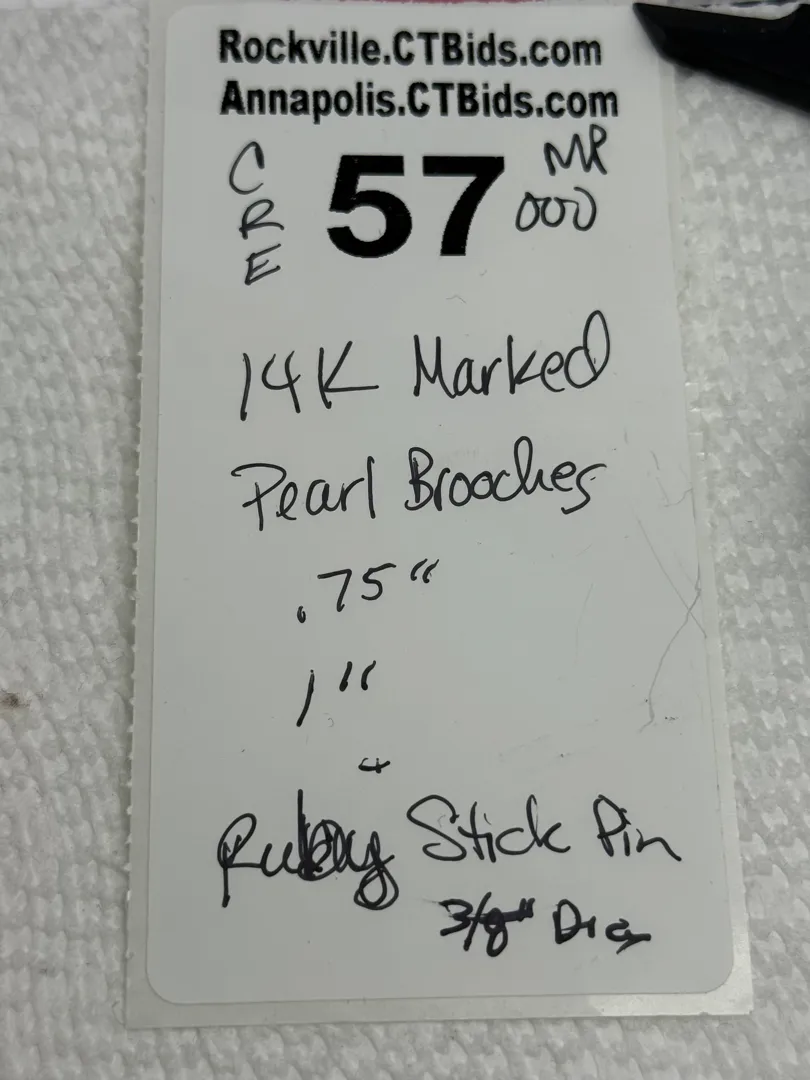 Rockville.CTBids.com
Annapolis.CTBids.com
CRE 57 MP
000
14K Marked
Pearl Brooches
.75"
1"
+
Ruby Stick Pin
3/8" Dia